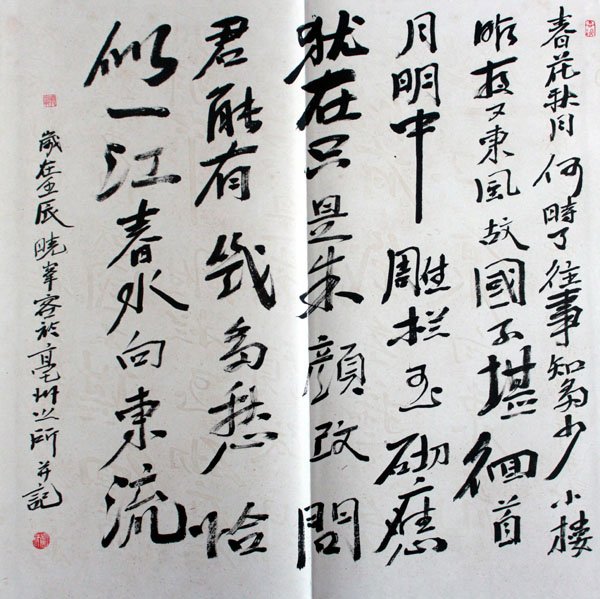 春花秋月何時了往事知多少小樓
昨夜又東風故國不堪徊首
月明中雕栏玉砌應
犹在只是朱顏改問
君能有幾多愁恰
似一江春水向東流
歲在壬辰曉峯客於亳州之所并記